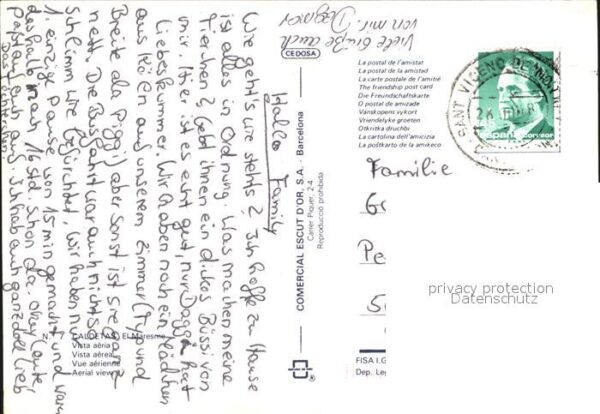 Hallo Family
Wie geht's wie stehts? Ich hoffe zu Hause
ist alles in Ordnung. Was machen meine
Tierchen? Gebt ihnen ein dickes Büssi von
mir. Hier ist es echt gut, nur Dagg hat
Liebeskummer. Wir haben noch ein Mädchen
aus Köln auf unserem Zimmer (Typ und
Breite a la Piggi) aber sonst ist sie ganz
nett. Die Busfahrt war auch nicht so
schlimm wie befürchtet, wir haben nur
1. einzige Pause von 15 min gemacht und waren
deshalb nach 16 std. schon da. Okay Leute,
Paßt auf euch auf. Ich hab euch ganz doll lieb
Viele Grüße auch
von mir. Dagmar
CEDOSA
COMERCIAL ESCUT D'OR, S.A. - Barcelona
Carrer Piquer, 2-4
Reproducció prohibida
N.° 7 CALDETAS (El Maresme)
Vista aèria
Vista aérea
Vue aérienne
Aerial view
La postal de l'amistat
La postal de la amistad
La carte postale de l'amitié
The friendship post card
Die Freundschaftskarte
O postal de amizade
Vänskapens vykort
Vriendelyke groeten
Otkritka druchbi
La cartolina dell'amicizia
La poŝtkarto de la amikeco
SANT VICENÇ DE MONTALT
España correos
Familie
G
Pe
5
privacy protection
Datenschutz
FISA I.G.
Dep. Leg